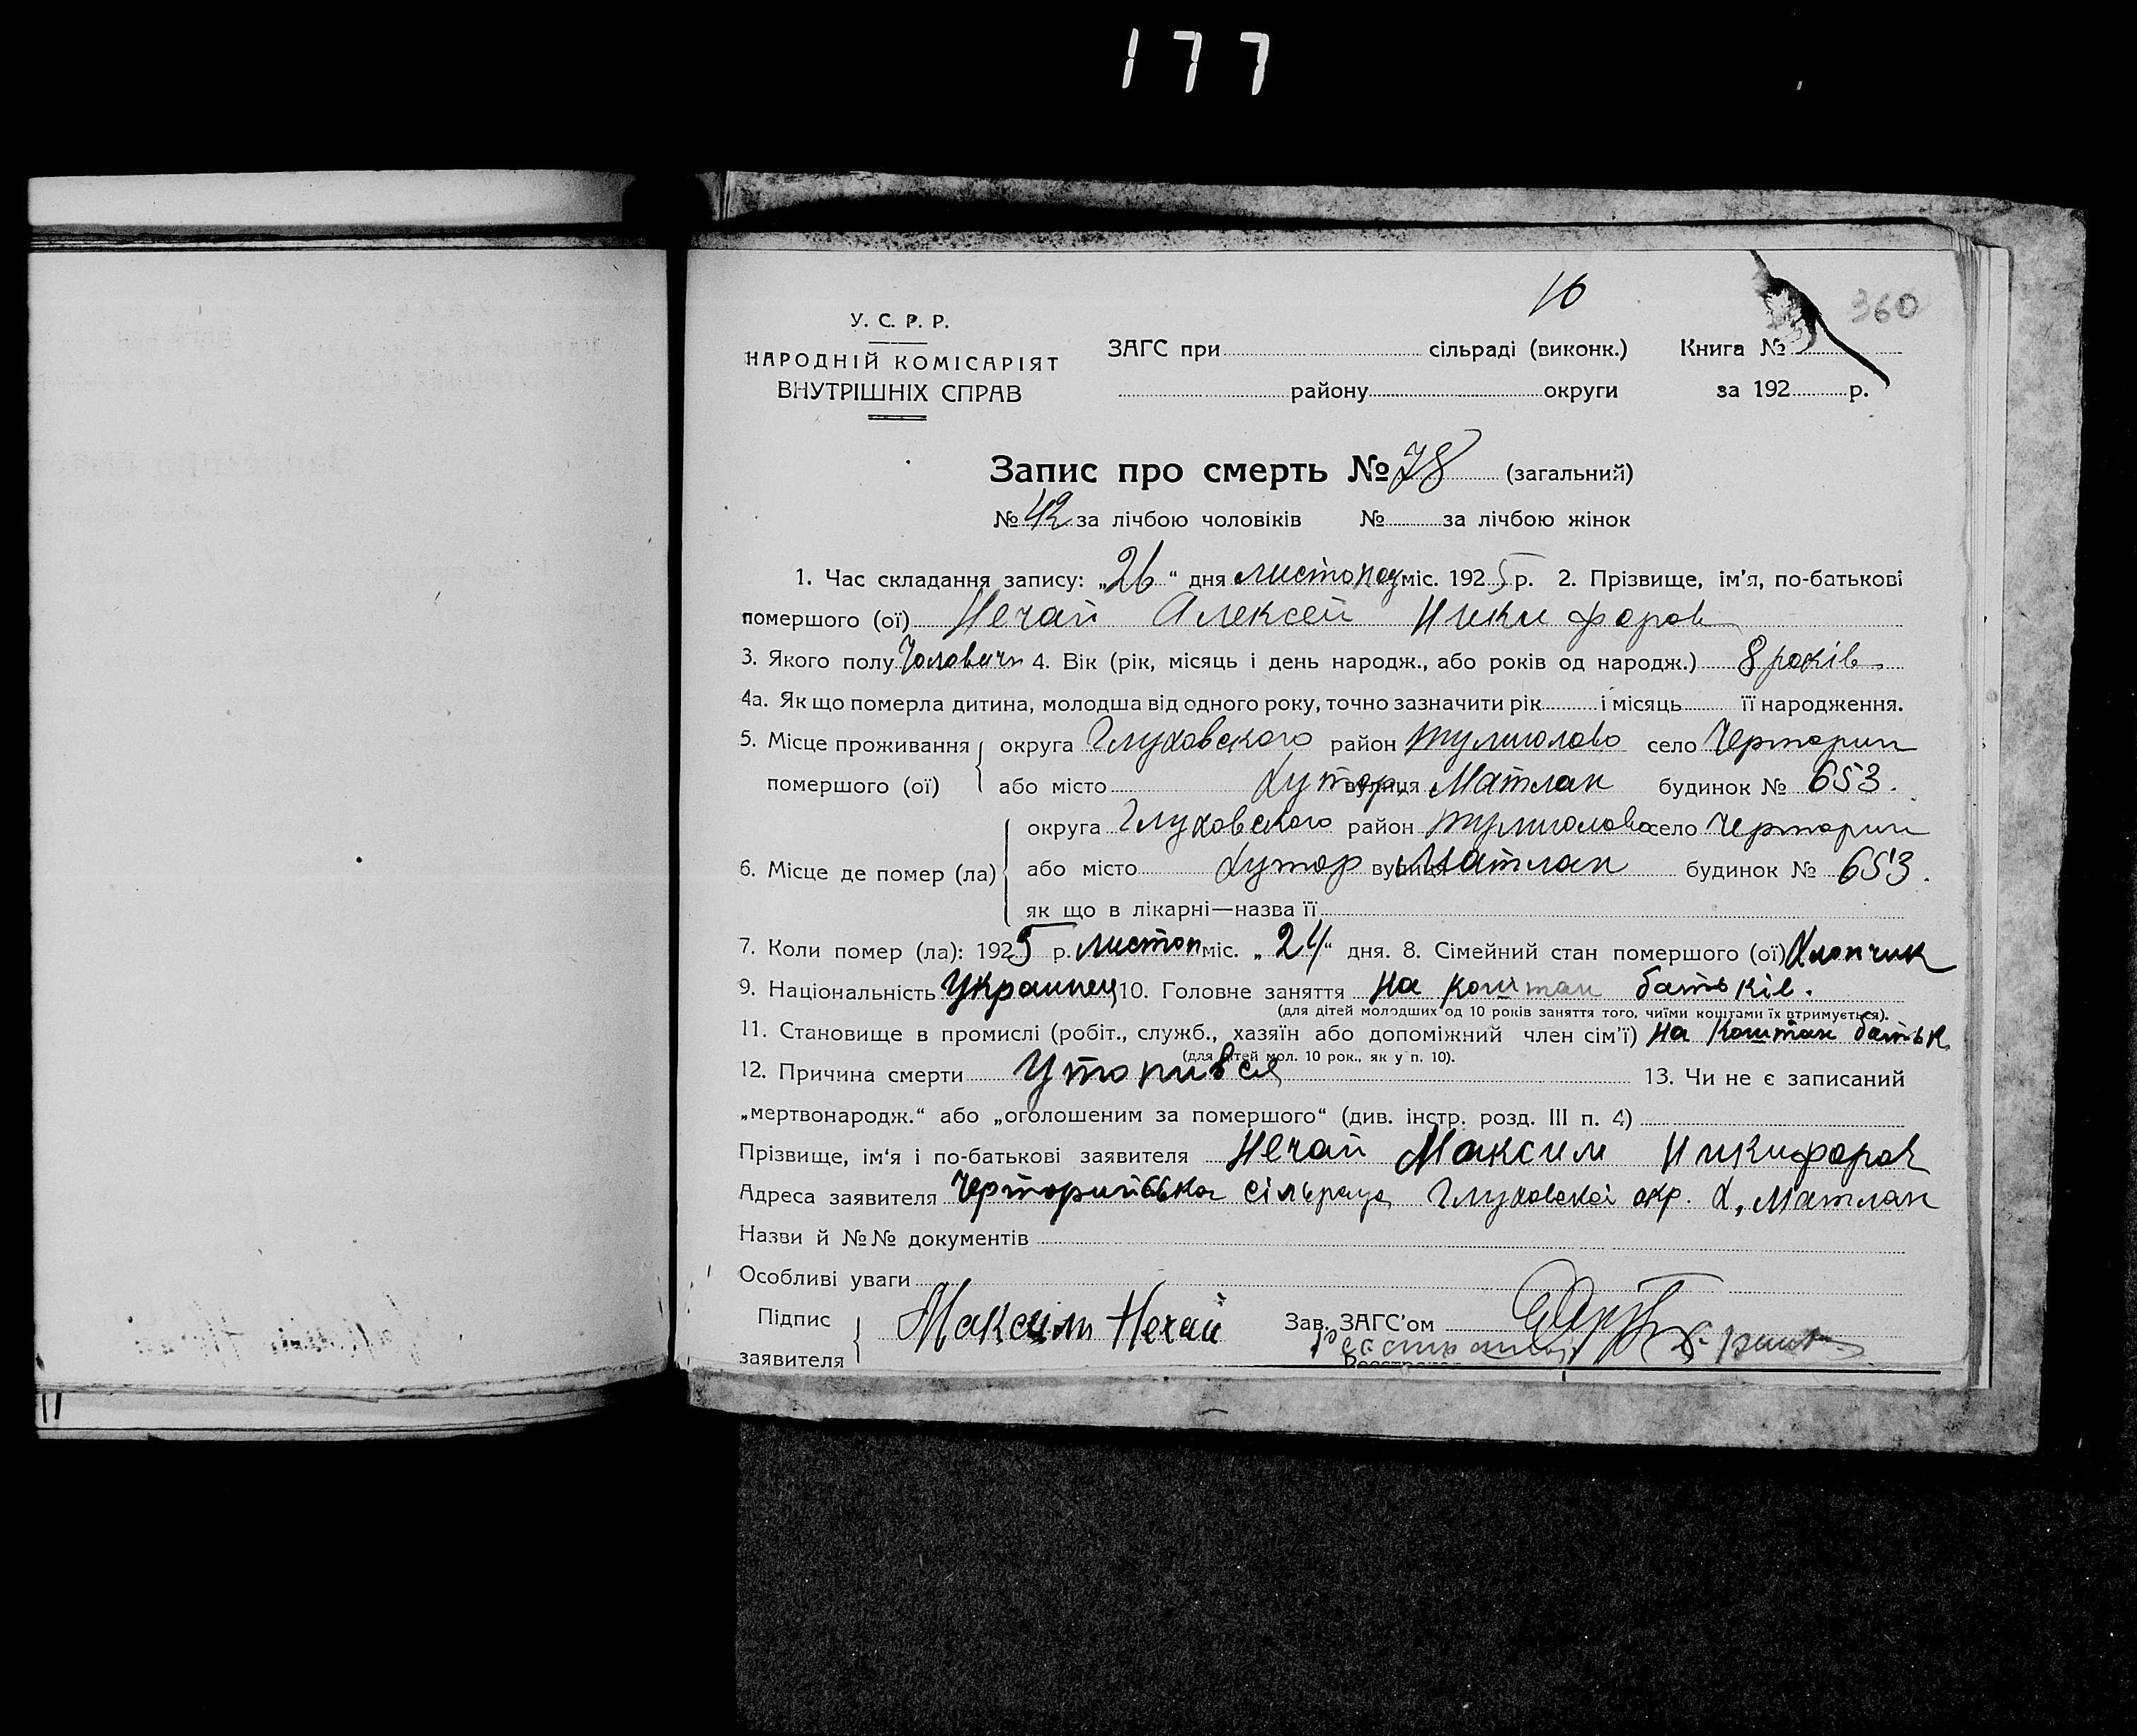 177
16
360
У. С. Р. Р.
НАРОДНІЙ КОМІСАРІЯТ
ВНУТРІШНІХ СПРАВ
ЗАГС при сільраді (виконк.) Книга №
району округи за 192 р.
Запис про смерть № 78 (загальний)
№ 42 за лічбою чоловіків № за лічбою жінок
1. Час складання запису: „26“ дня листопад міс. 1925 р. 2. Прізвище, ім'я, по-батькові
помершого (ої) Нечай Алексей Никифоров
3. Якого полу Чоловичи 4. Вік (рік, місяць і день народж., або років од народж.) 8 років
4а. Як що померла дитина, молодша від одного року, точно зазначити рік і місяць її народження.
5. Місце проживання округа Глуховского район тулиголово село Чертории
помершого (ої) або місто хутор вулиця Матлах будинок № 653.
округа Глуховского район тулиголово село Чертории
6. Місце де помер (ла) або місто хутор вулиця Матлах будинок № 653.
як що в лікарні—назва її
7. Коли помер (ла): 1925 р. листоп міс. „24“ дня. 8. Сімейний стан помершого (ої) Хлопчик
9. Національність Украинец 10. Головне заняття на коштах батьків.
(для дітей молодших од 10 років заняття того, чиїми коштами їх втримується).
11. Становище в промислі (робіт., служб., хазяїн або допоміжний член сім'ї) на коштах батьк
(для дітей мол. 10 рок., як у п. 10).
12. Причина смерти Утопився 13. Чи не є записаний
„мертвонародж.“ або „оголошеним за помершого“ (див. інстр. розд. III п. 4)
Прізвище, ім'я і по-батькові заявителя Нечай Максим Никифоров
Адреса заявителя Черторийська сільрада Глуховскої окр. х. Матлах
Назви й №№ документів
Особливі уваги
Підпис Максим Нечай Зав. ЗАГС'ом
заявителя